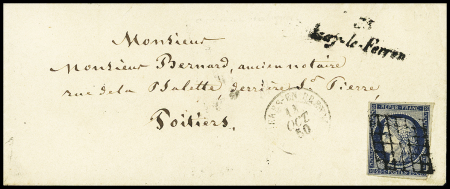 35
Azay-le-Ferron
Monsieur
Monsieur Bernard, ancien notaire
rue de la Jalette derrière St Pierre
Poitiers.
11
OCT
50
REPUB. FRANC.